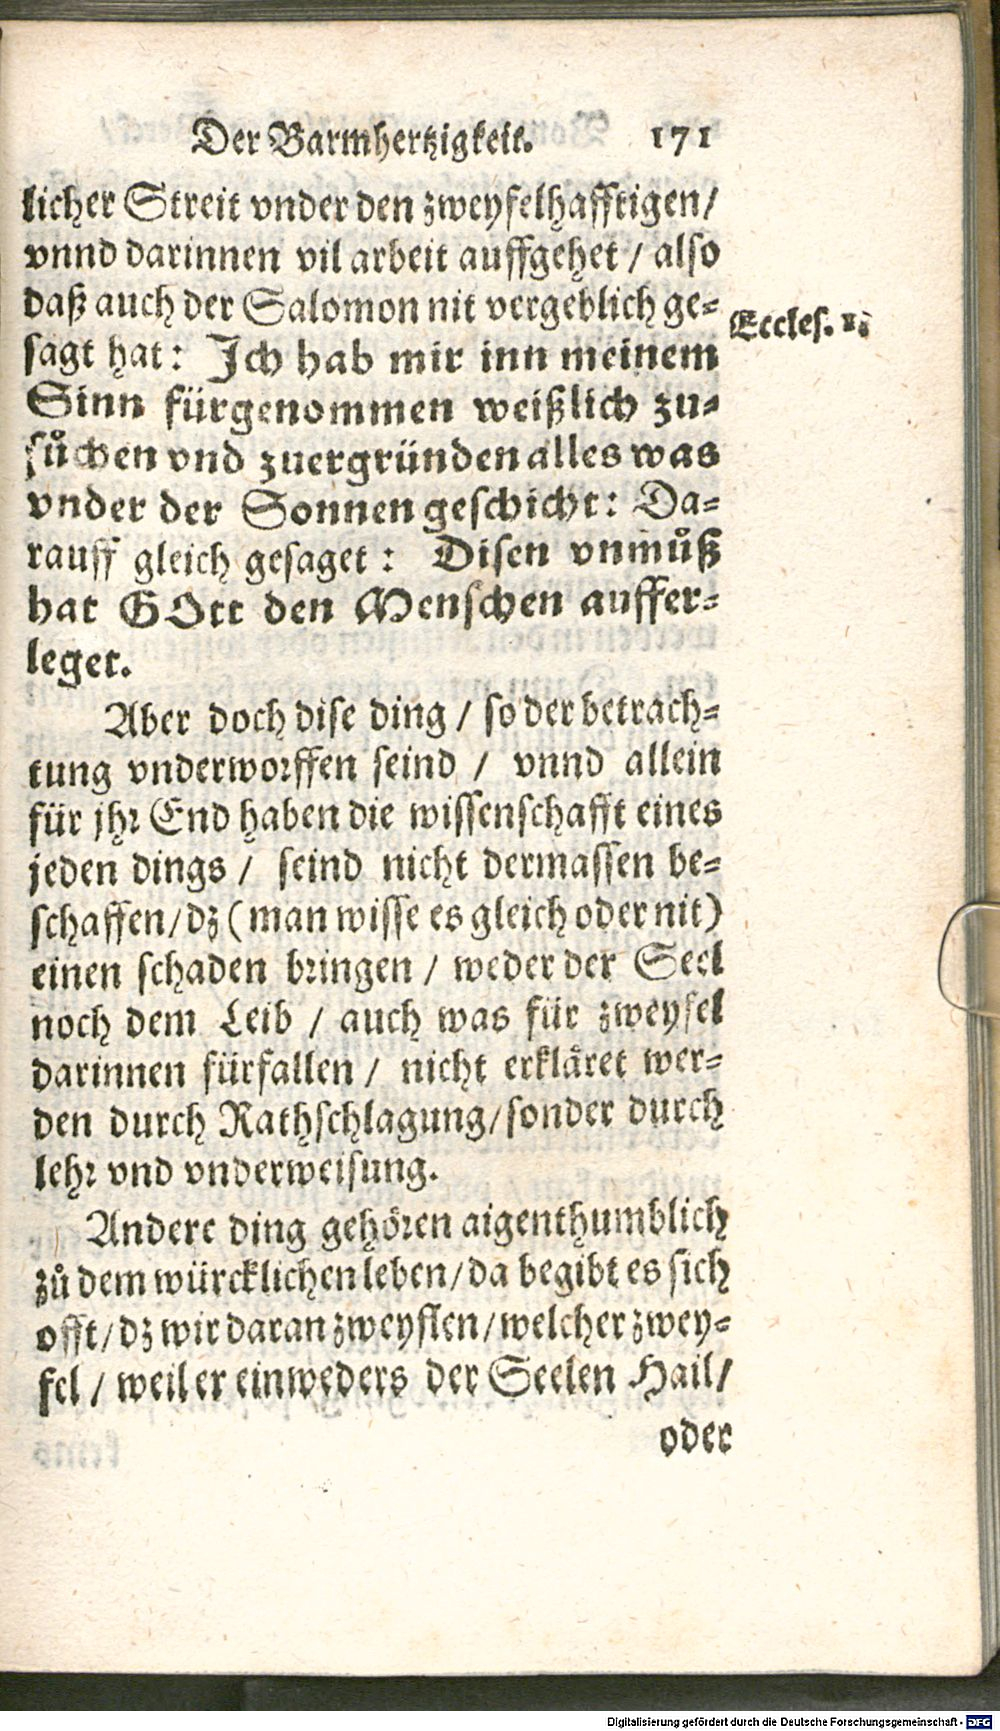 Der Barmhertzigkeit. 171
licher Streit vnder den zweyfelhafftigen/
vnnd darinnen vil arbeit auffgehet / also
daß auch der Salomon nit vergeblich ge-
Eccles. 1.
sagt hat: Ich hab mir inn meinem
Sinn fürgenommen weißlich zu-
sůchen vnd zuergründen alles was
vnder der Sonnen geschicht: Da-
rauff gleich gesaget: Disen vnmůß
hat GOtt den Menschen auffer-
leget.
Aber doch dise ding / so der betrach-
tung vnderworffen seind / vnnd allein
für jhr End haben die wissenschafft eines
jeden dings / seind nicht dermassen be-
schaffen/dz (man wisse es gleich oder nit)
einen schaden bringen / weder der Seel
noch dem Leib / auch was für zweyfel
darinnen fürfallen / nicht erkläret wer-
den durch Rathschlagung/sonder durch
lehr vnd vnderweisung.
Andere ding gehören aigenthumblich
zů dem würcklichen leben/da begibt es sich
offt/dz wir daran zweyflen/welcher zwey-
fel / weil er einweders der Seelen Hail/
oder
Digitalisierung gefördert durch die Deutsche Forschungsgemeinschaft - DFG